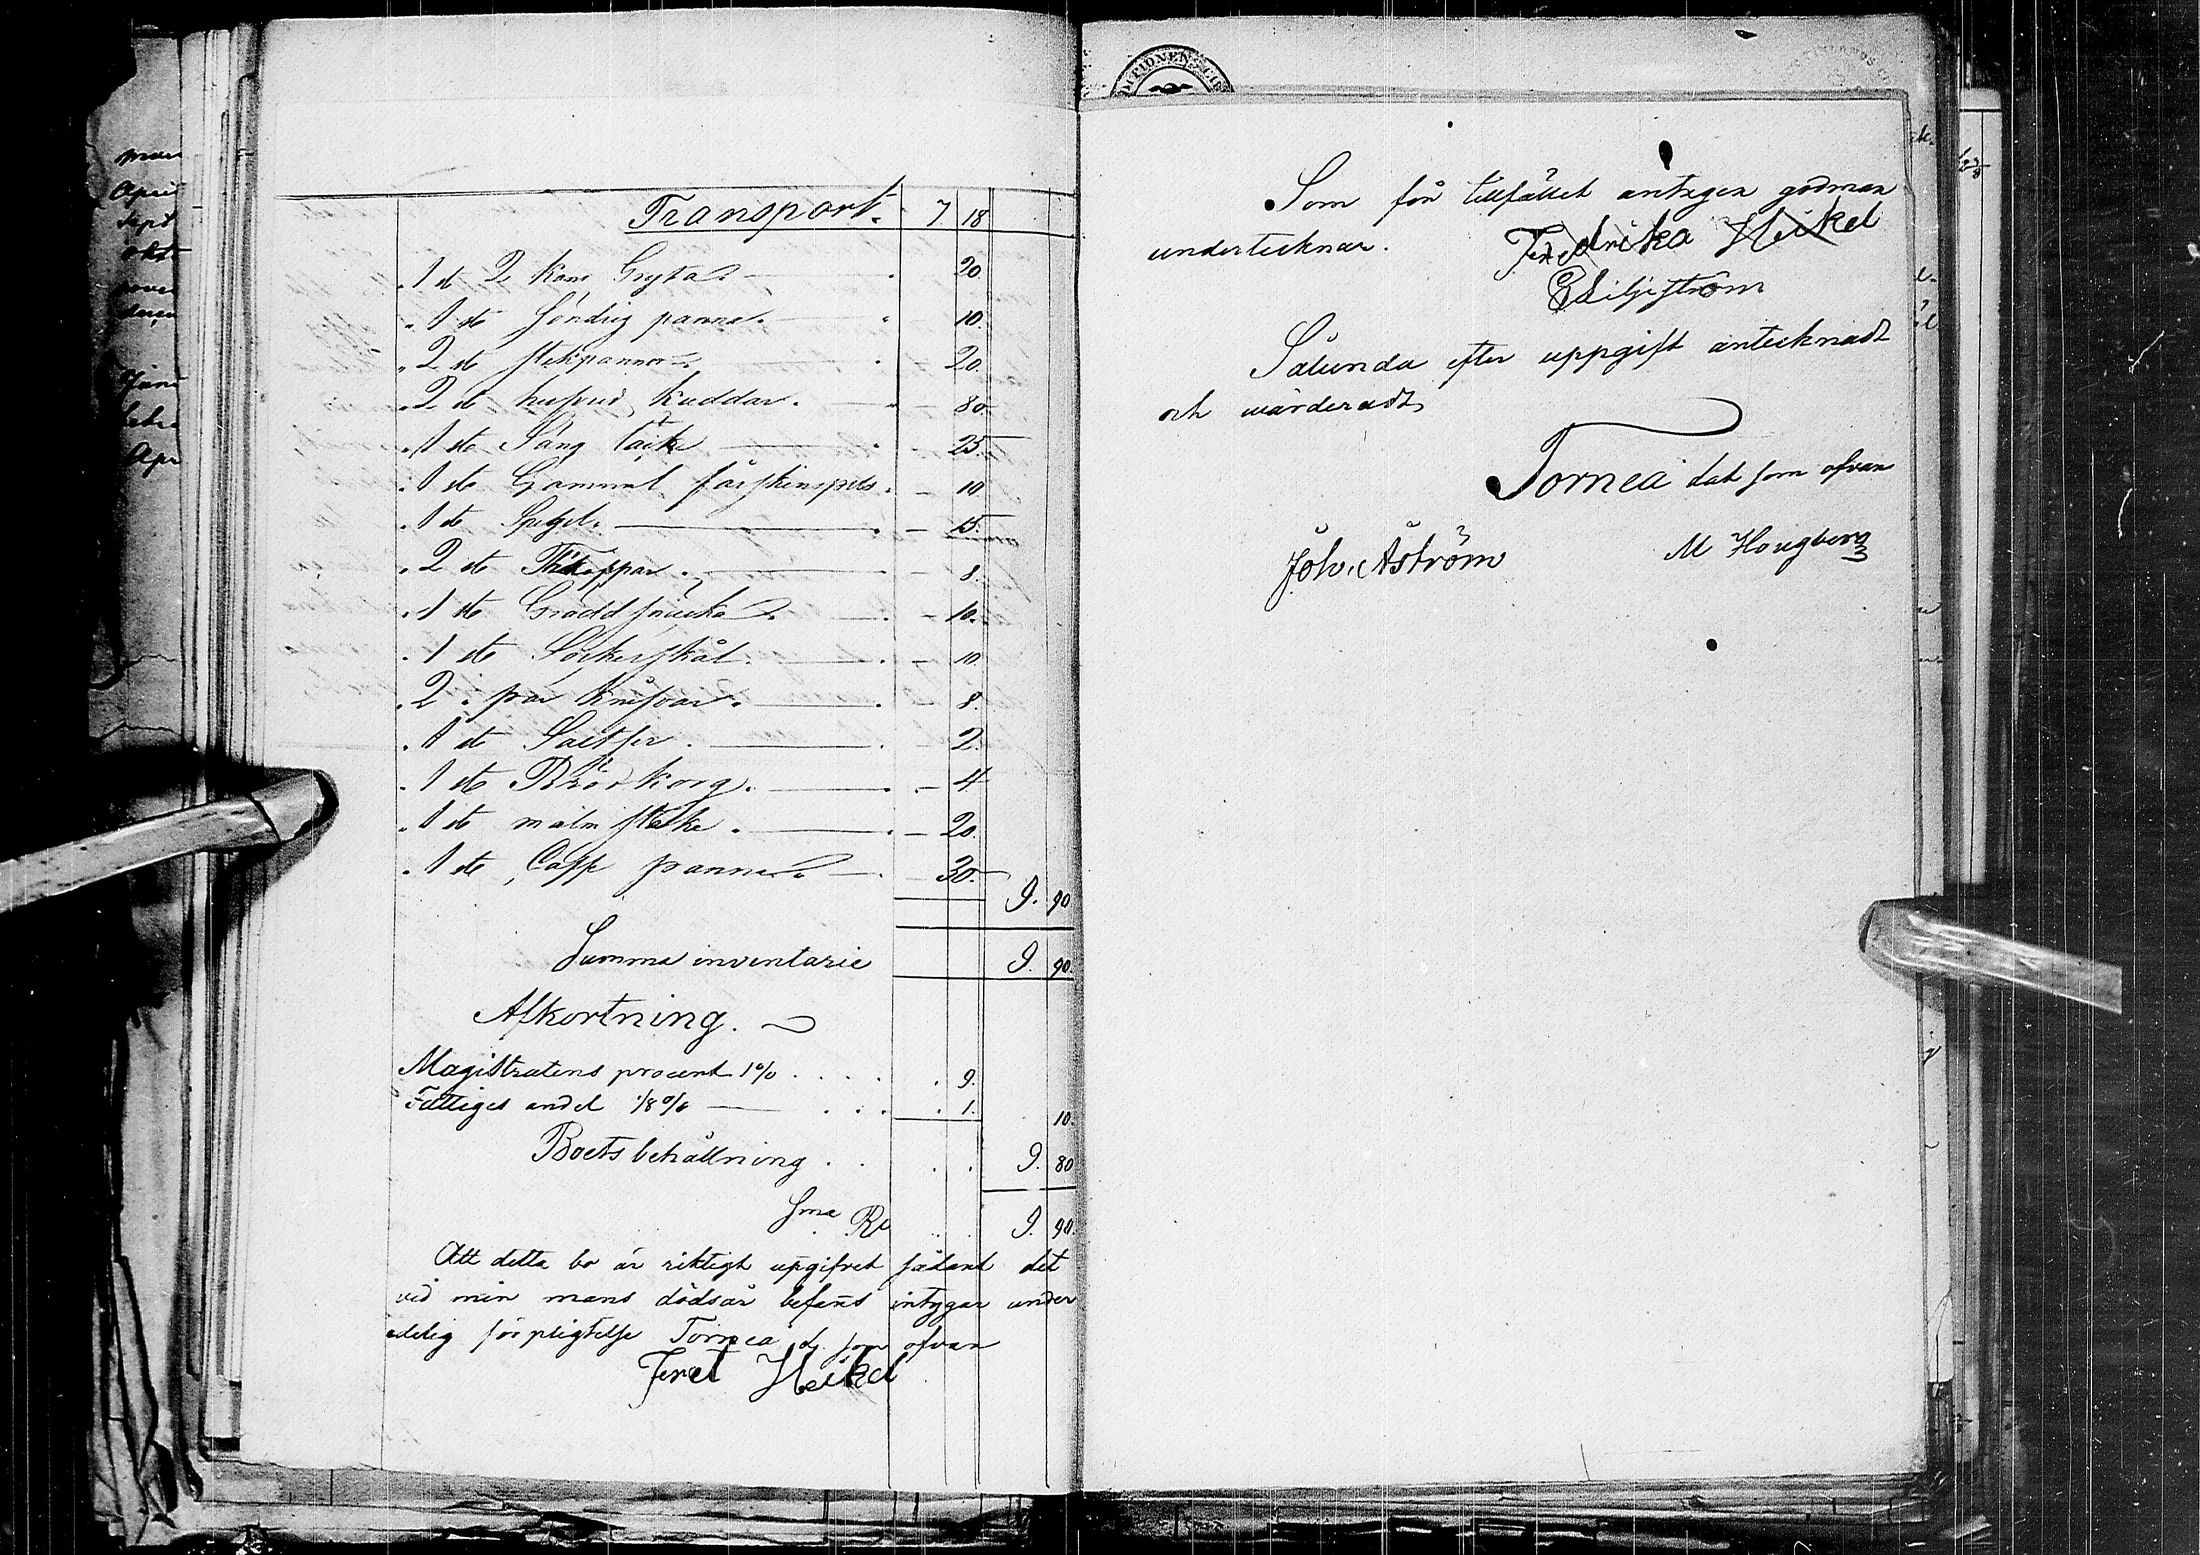 Transport. 7. 18
1 st 2 Kans Gryta 20
1 st söndrig panna 10.
2 st stekpannor 20.
2 st kuddar 80
1 st Säng täcke 25.
1 st Gammal fårskinspels 10
1 st Spegel 15.
2 st Thékoppar 8.
1 st Gräddsnäcka 10.
1 st Sockerskål 10
2 par Knifvar 8.
1 st Saltser 2.
1 st Brödkorg 4
1 st malm stake 20.
1 st Caffe panna 30.
9. 90
Summa inventarie 9. 90.
Afkortning.
Magistratens procent 1% 9.
Fattiges andel 1/8% 1. 10.
Boets behållning 9. 80
Sma Rb 9. 90.
Att detta bo är riktigt upgifvet sådant det
vid min mans dödsår befans intygar under
edelig förpligtelse Torneå d. som ofvan
Fred Heikel
Som för tillfället antagen godman
undertecknar. Fredrika Heikel
Liljeström
Sålunda efter uppgift antecknadt
och värderadt
Torneå dat som ofvan
Joh. Åström M Hougberg